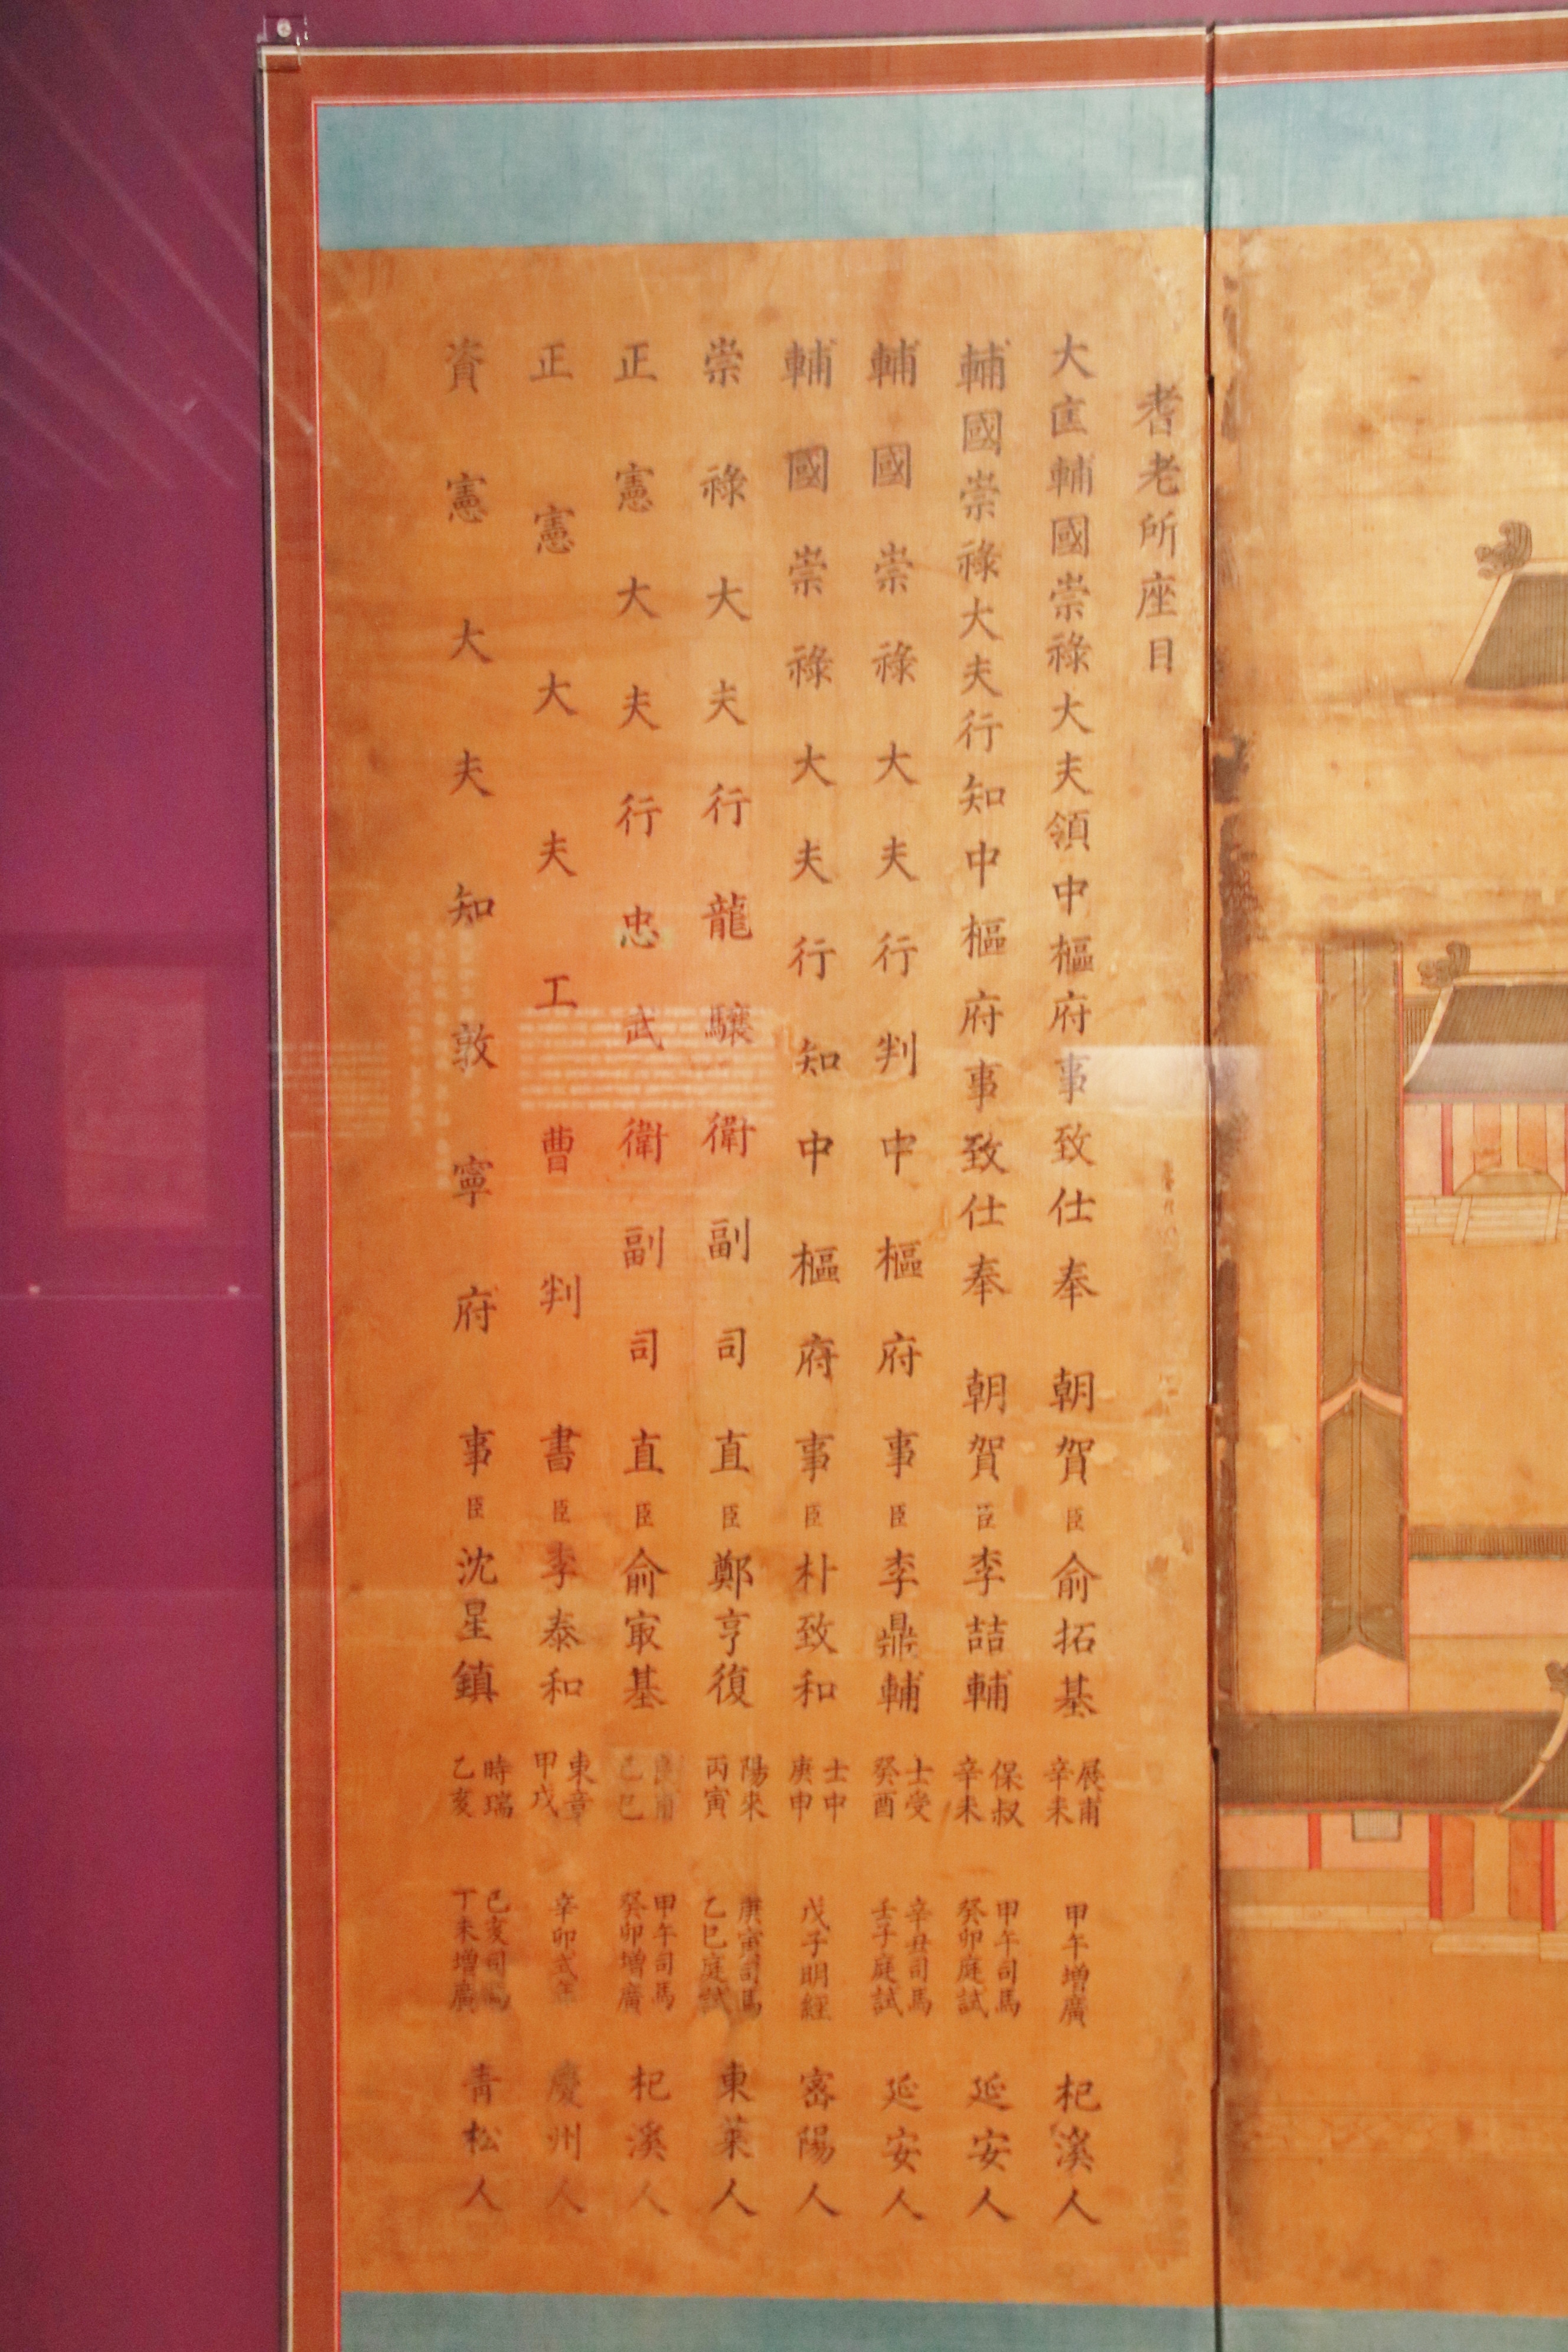 耆老所座目
大匡輔國崇祿大夫領中樞府事致仕奉 朝賀臣俞拓基 展甫 辛未 甲午增廣 杞溪人
輔國崇祿大夫行知中樞府事致仕奉 朝賀臣李喆輔 保叔 辛未 甲午司馬 癸卯庭試 延安人
輔國崇祿大夫行判中樞府事臣李鼎輔 士受 癸酉 辛丑司馬 壬子庭試 延安人
輔國崇祿大夫行知中樞府事臣朴致和 士中 庚申 戊子明經 密陽人
崇祿大夫行龍驤衛副司直臣鄭亨復 陽來 丙寅 庚寅司馬 乙巳庭試 東萊人
正憲大夫行忠武衛副司直臣俞㝡基 己巳 甲午司馬 癸卯增廣 杞溪人
正憲大夫工曹判書臣李泰和 東章 甲戌 辛卯式年 慶州人
資憲大夫知敦寧府事臣沈星鎮 時瑞 乙亥 己亥司馬 丁未增廣 青松人